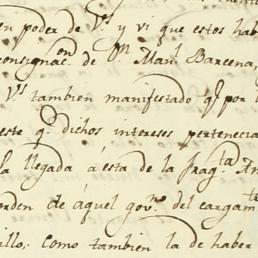 en poder de Vs y vi que estos hab
consignac.on de Dn Man.l Barcena,
Vs tambien manifestado q.e por
este q.e dichos intereses pertenecia
la llegada á esta de la frag.ta An
orden de aquel gov.no del cargam.to
illo, como tambien la de haber